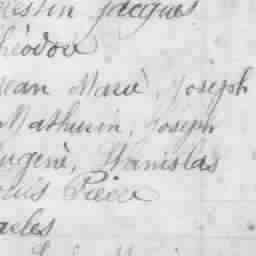 Jacques
Théodore
Jean Marie, Joseph
Mathurin, Joseph
Eugène, Stanislas
Louis Pierre